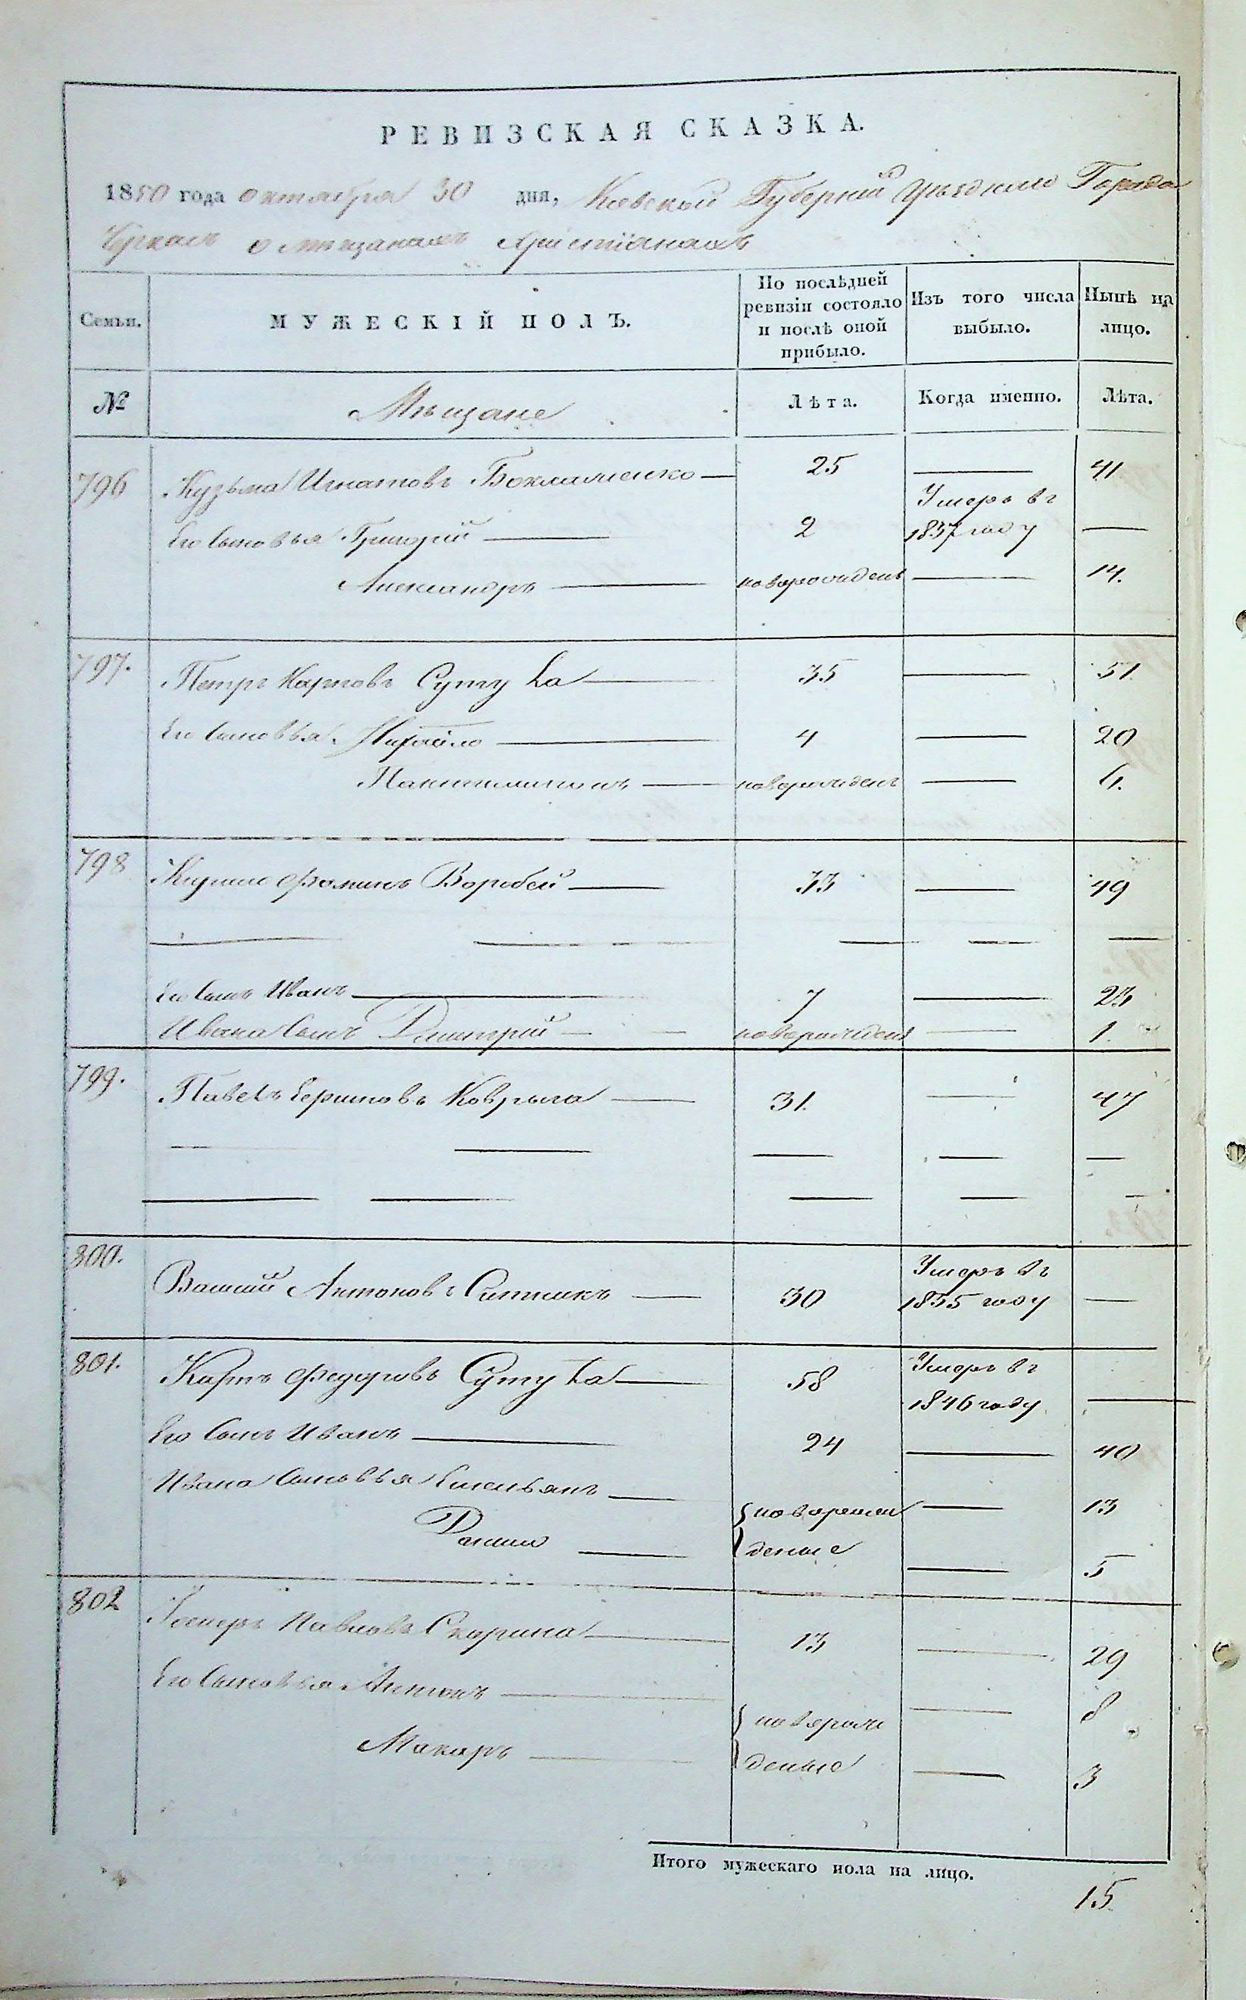 РЕВИЗСКАЯ СКАЗКА.
1850 года октября 30 дня, Киевской Губернии Уезднаго Города
Черкасъ о мещанахъ Христіанахъ
Семьи. МУЖЕСКІЙ ПОЛЪ. По послѣдней ревизіи состояло и послѣ оной прибыло. Изъ того числа выбыло. Нынѣ на лицо.
№ Мещане Лѣта. Когда именно. Лѣта.
796 Кузьма Игнатовъ — 25 — 41
Его Сыновья Григорій — 2 Умеръ въ 1837 году —
Александръ — новорожденъ — 14.
797. Петръ Карповъ — 35 — 51
Его Сыновья Михайло — 4 — 20
Пантилимонъ — новорожденъ — 6.
798 Фоминъ Воробей — 33 — 49
— — — — —
Его Сынъ Иванъ — 7 — 23
Ивана Сынъ Дмитрій — новорожденъ — 1.
799. Павелъ — 31. — 47
— — — — —
— — — — —
800. Антоновъ Ситникъ — 30 Умеръ въ 1835 году —
801. Карпъ Федоровъ — 58 Умеръ въ 1846 году —
Его Сынъ Иванъ — 24 — 40
Ивана Сыновья Емельянъ — новорожденные — 13
— — 5
802 Павловъ Скорина — 13 — 29
Его Сыновья Антонъ — новорожденные — 8
Макаръ — — 3
Итого мужескаго пола на лицо.
15.